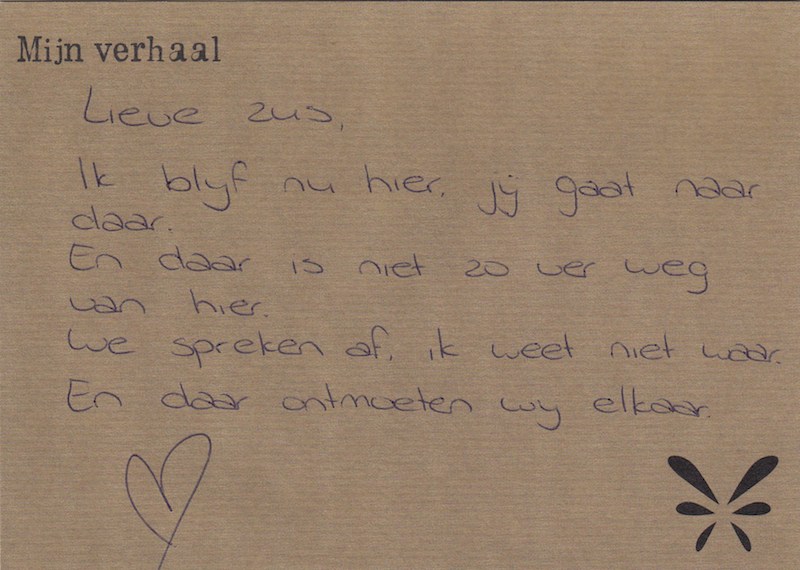 Mijn verhaal
Lieve zus,
Ik blijf nu hier, jij gaat naar
daar.
En daar is niet zo ver weg
van hier.
We spreken af, ik weet niet waar.
En daar ontmoeten wij elkaar.